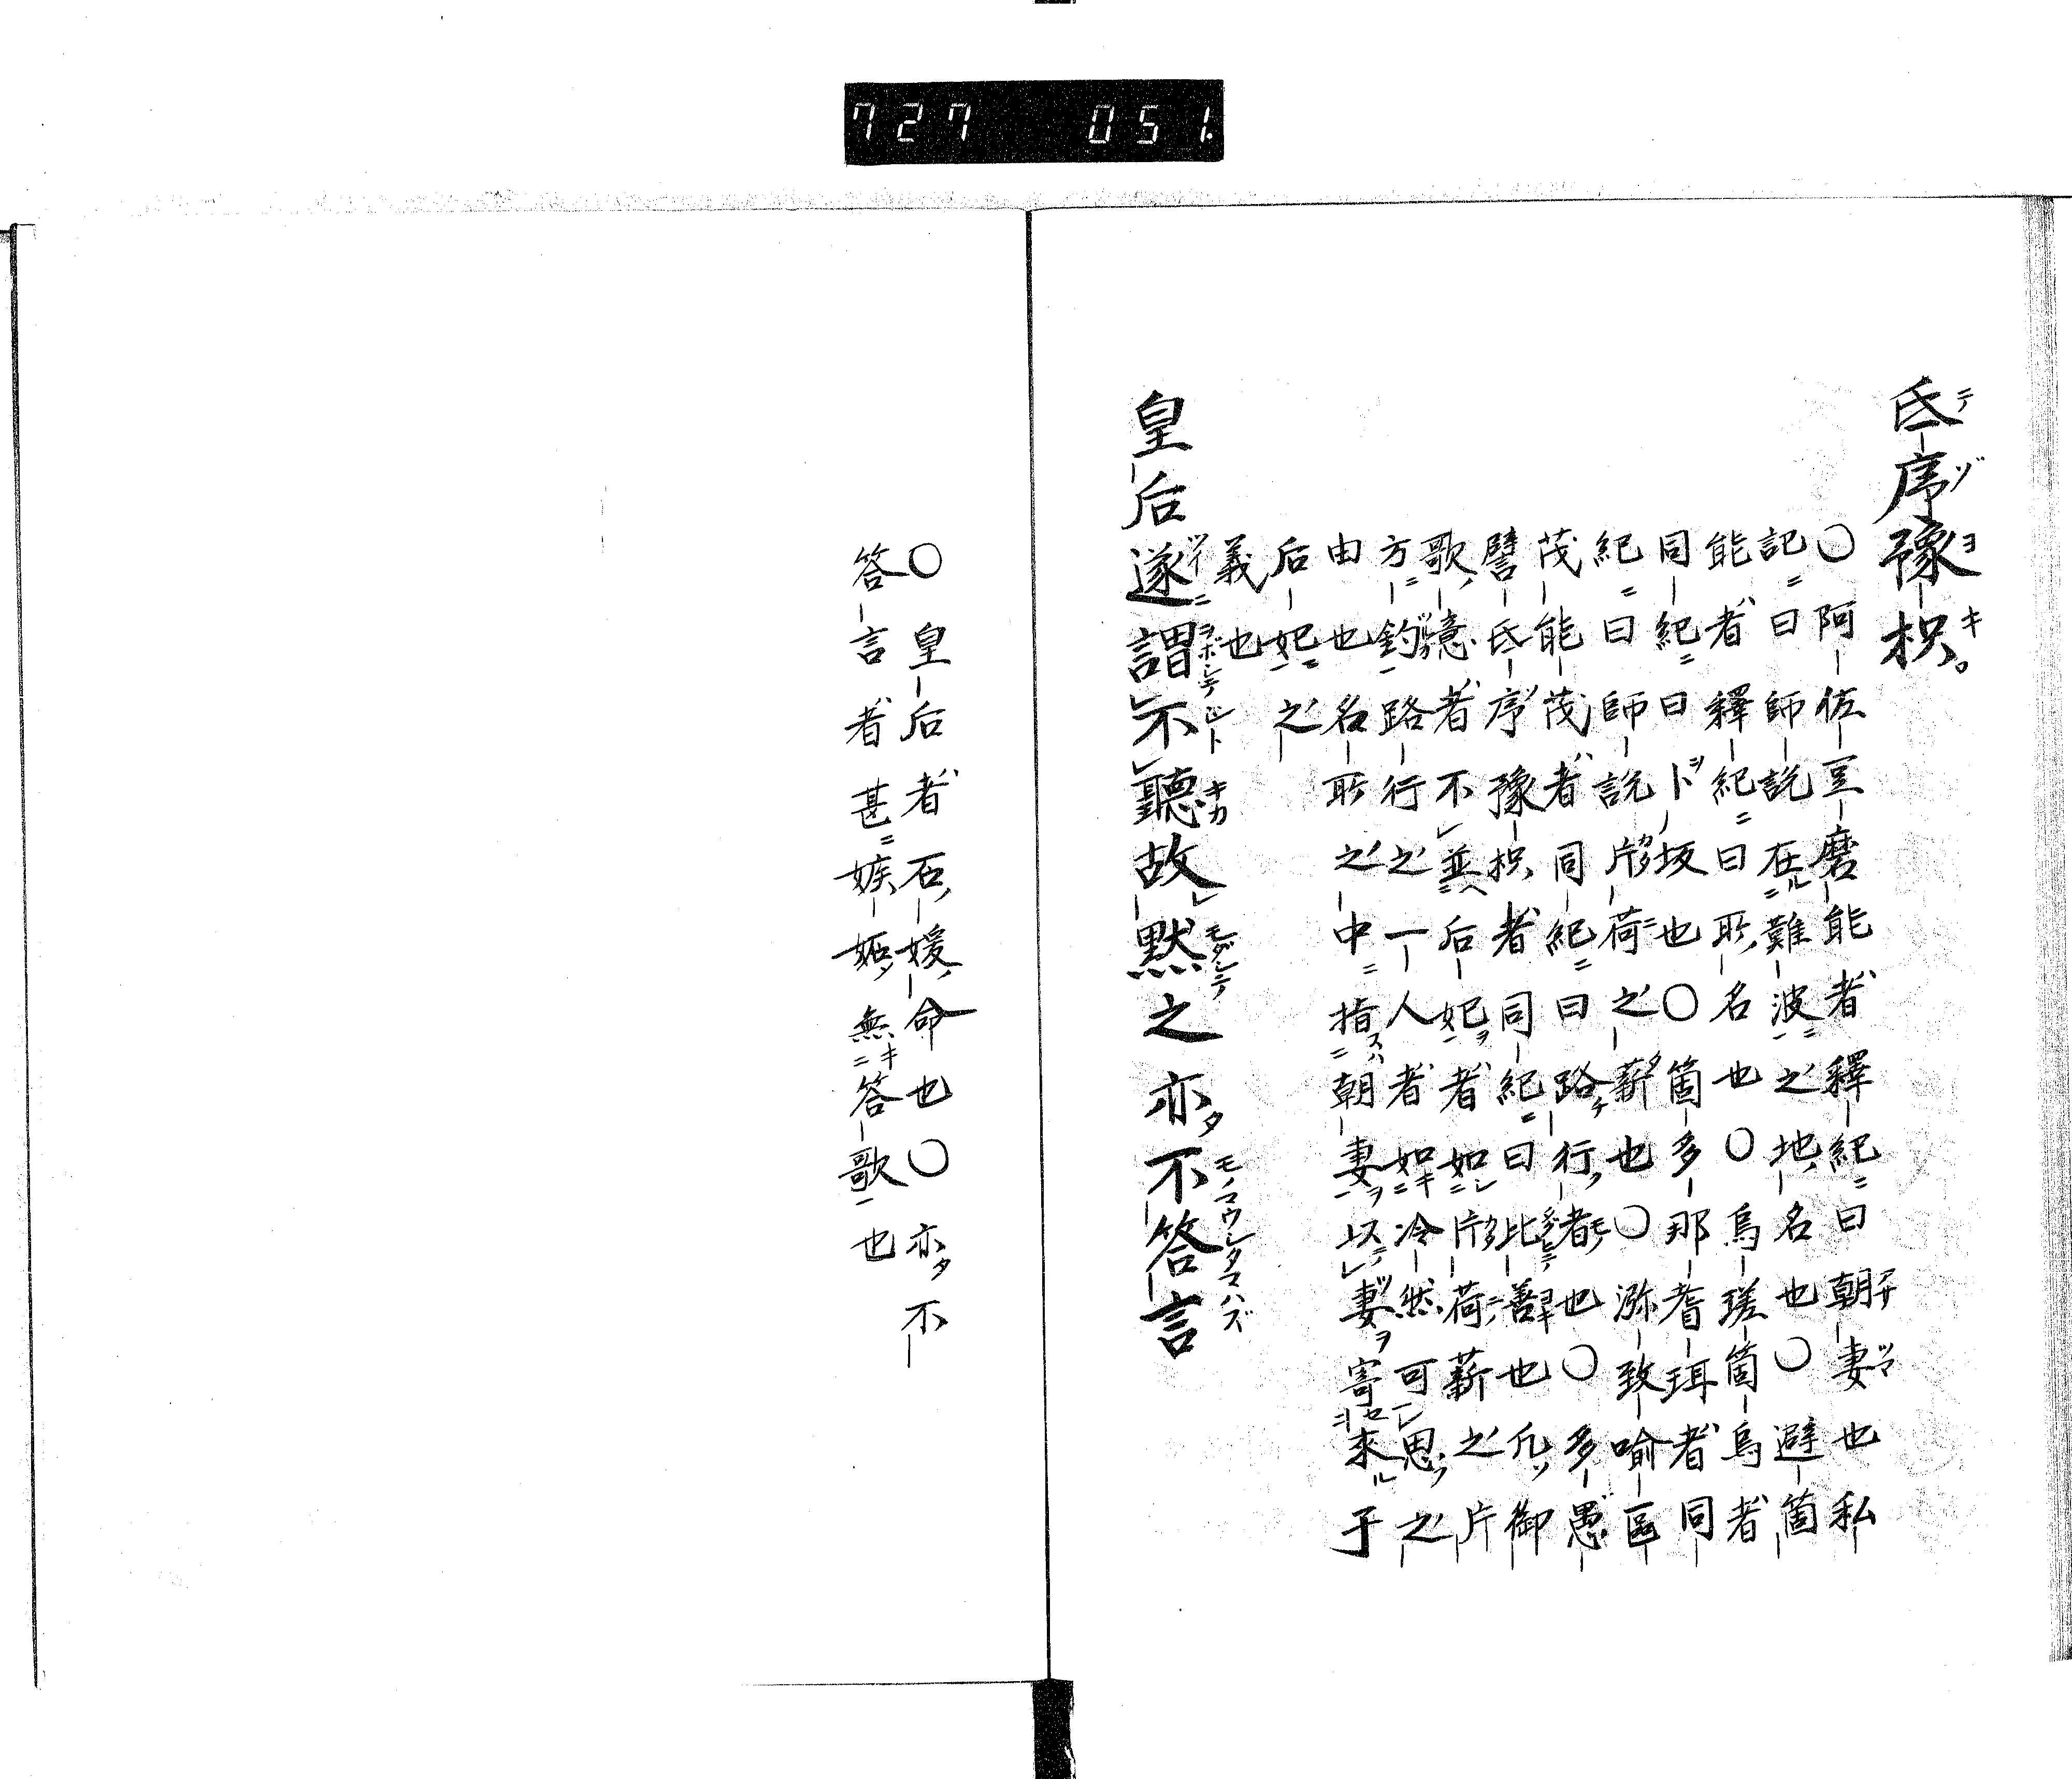 727 051.
氐序豫枳
○阿佐豆磨能者釋紀曰朝妻也私
記曰師說在難波之地名也○避箇
能者釋紀曰所名也○烏瑳箇烏者
同紀曰ヲド坂也○箇多那耆珥者同
紀曰師說片荷之薪也○瀰致喩區
茂能茂者同紀曰路行者也○多愚
譬氐序豫枳者同紀曰比善也凡御
歌意者不並后妃者如片荷薪之片
方釣路行之一人者如冷然可思之
由也名所之中指朝妻以妻寄來于
后妃之
義也
皇后遂謂不聽故默之亦不答言
○皇后者石媛命也○亦不
答言者甚嫉妬無答歌也